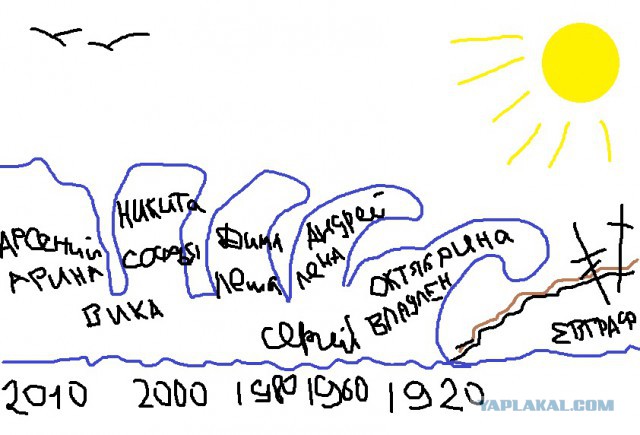 НИКИТА
СОФЬЯ
ДИМА
ЛЕША
АНДРЕЙ
ЛЕНА
ОКТЯБРИНА
ВЛАДЛЕН
АРСЕНИЙ
АРИНА
ВИКА
СЕРГЕЙ
ЕВГРАФ
2010 2000 1980 1960 1920
YAPLAKAL.COM